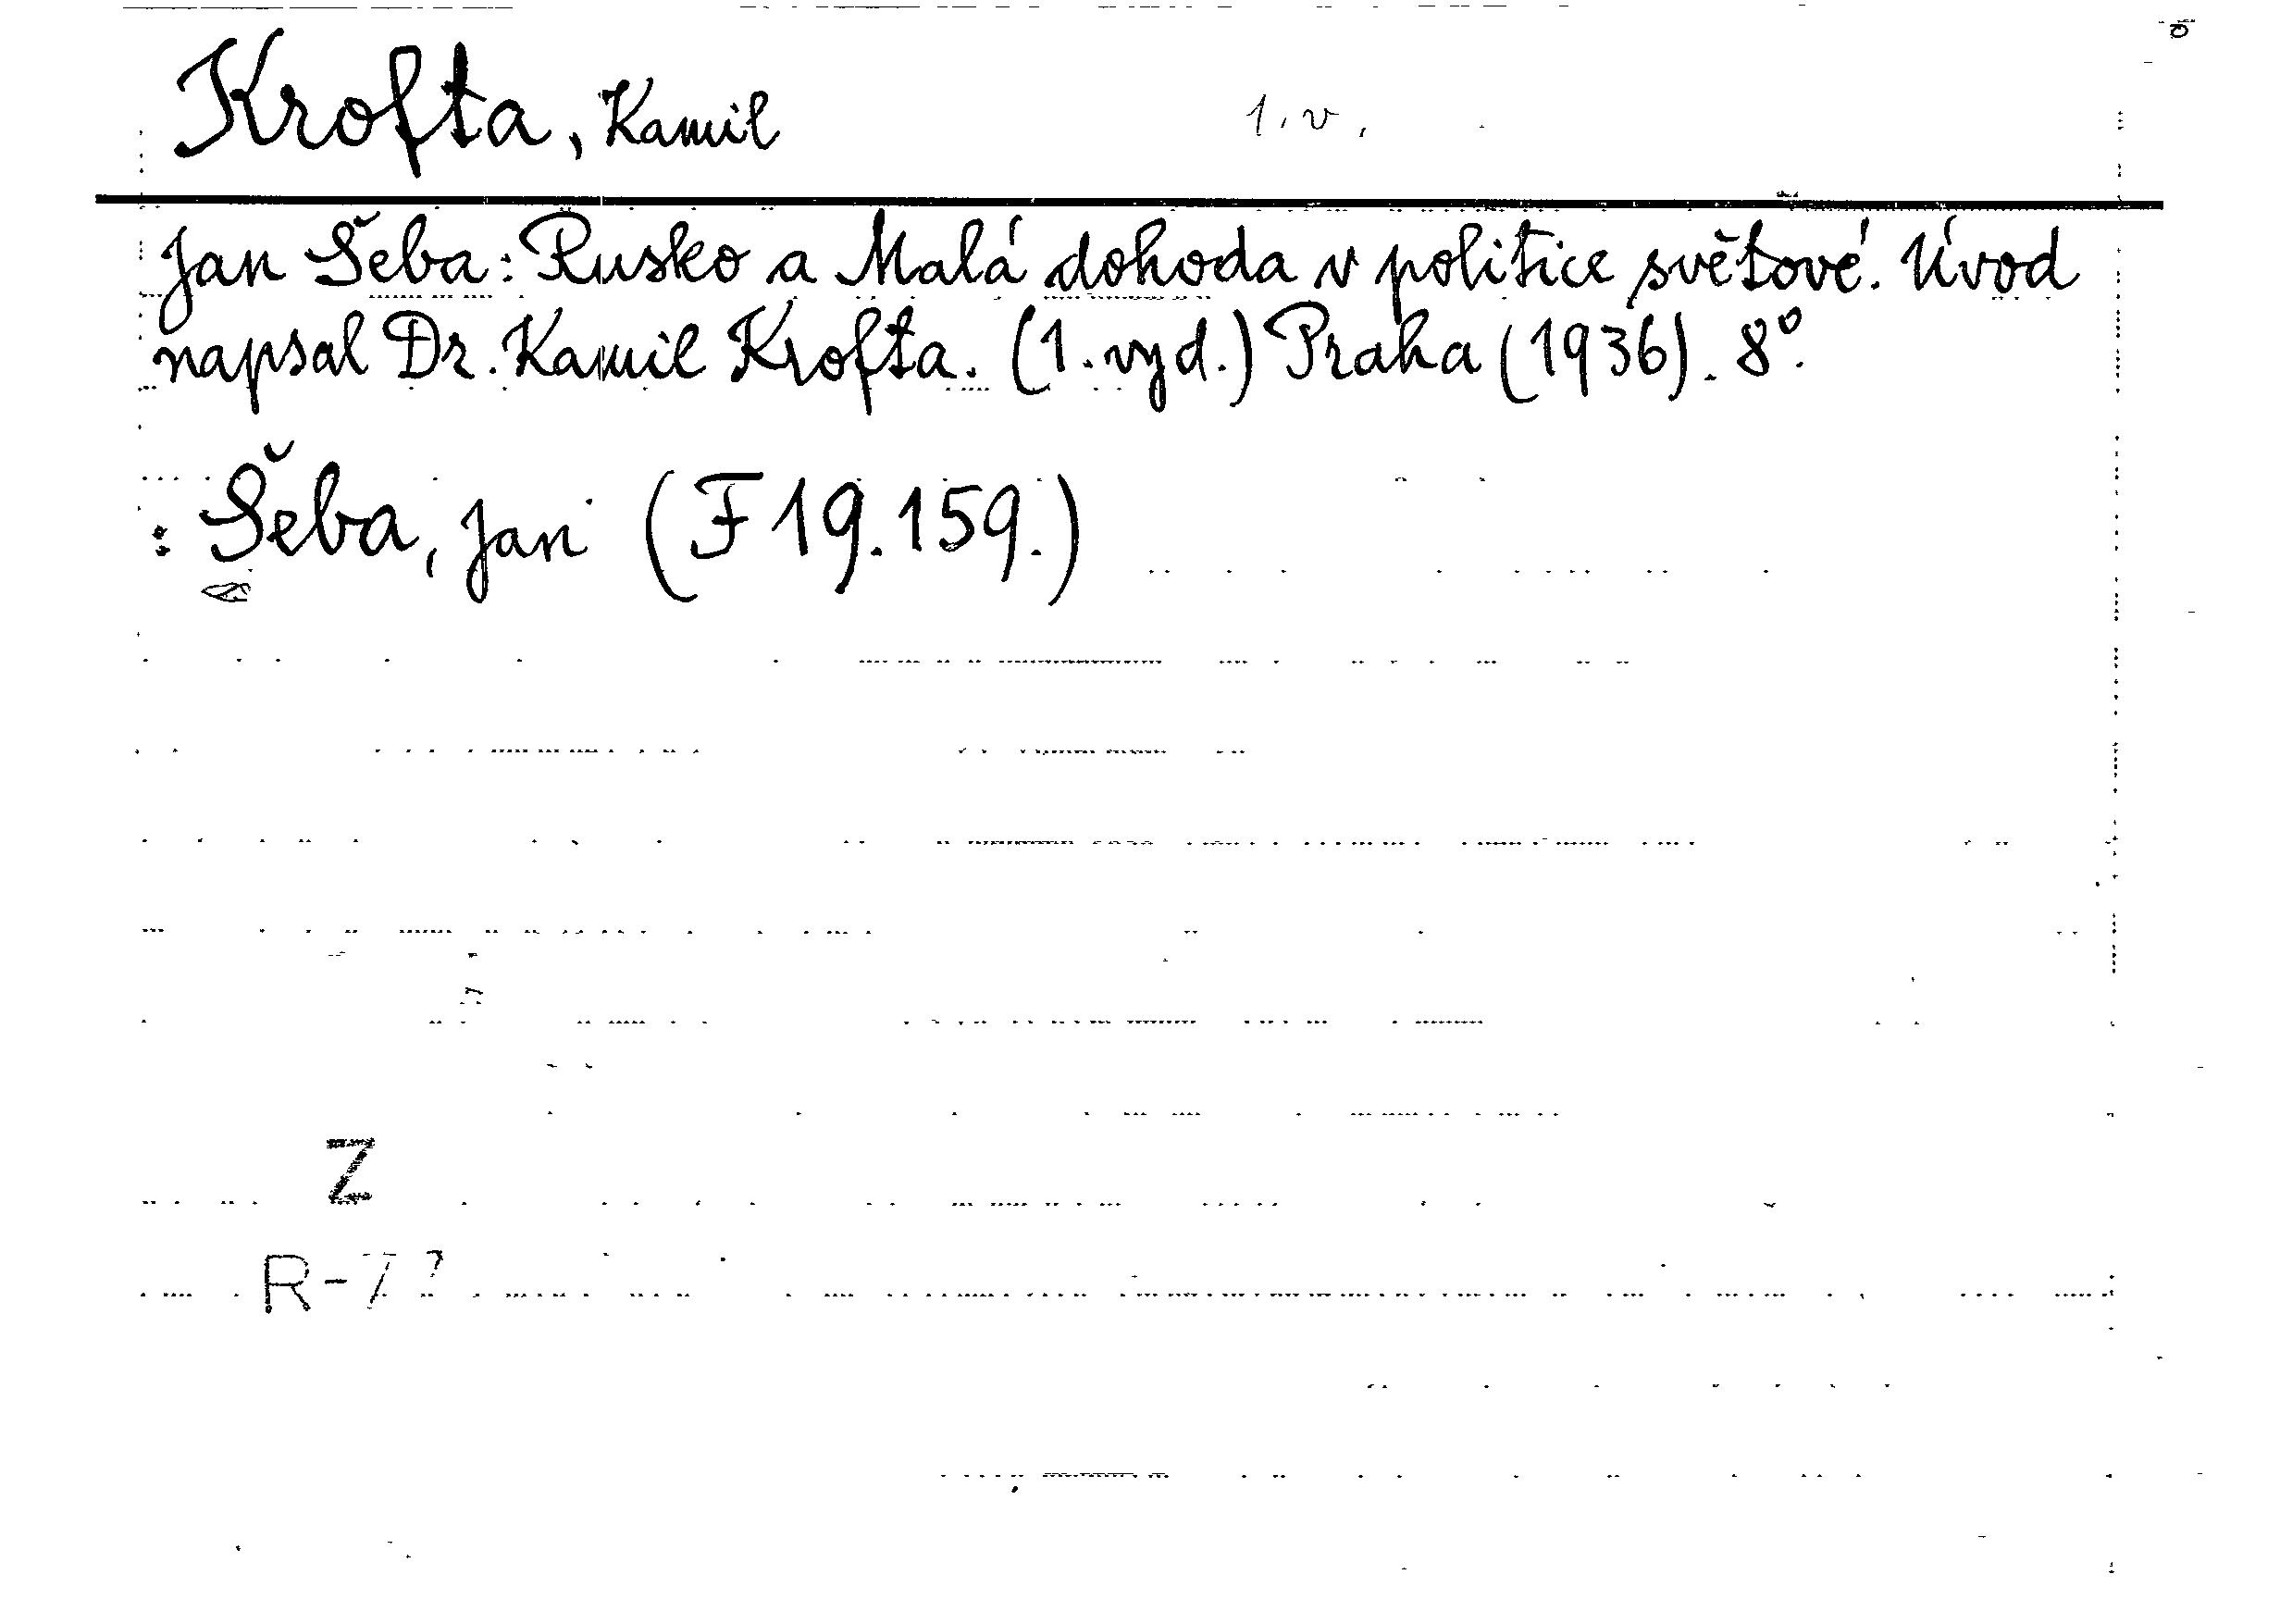 Krofta, Kamil 1.v.
Jan Šeba: Rusko a Malá dohoda v politice světové. Úvod
napsal Dr. Kamil Krofta. (1. vyd.) Praha (1936). 8°.
: Šeba, Jan (F 19.159.)
Z
R-7